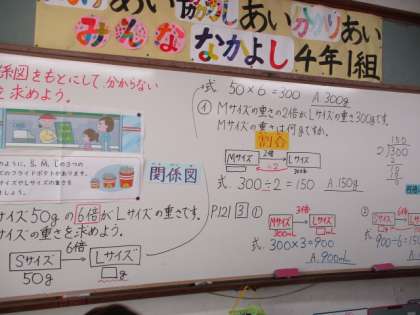 あい 協力しあい かかりあい
みんな なかよし 4年1組
係図をもとにして、分からない
を求めよう。
式 50×6=300 A 300g
① Mサイズの重さの2倍がLサイズの重さ300gです。
Mサイズの重さは何gですか。
Mサイズ 2倍 Lサイズ
□g ÷2 300g
式 300÷2=150 A 150g
150
2)300
関係図
ように、S、M、Lの3つの
イズやLサイズの重さを
サイズ50gの6倍がLサイズの重さです。
サイズの重さを求めよう。
Sサイズ 6倍 Lサイズ
50g □g
P121 3 ①
Mサイズ 3倍 Lサイズ
300mL □mL
式 300×3=900
A 900mL
② 6倍
式 900÷6=150